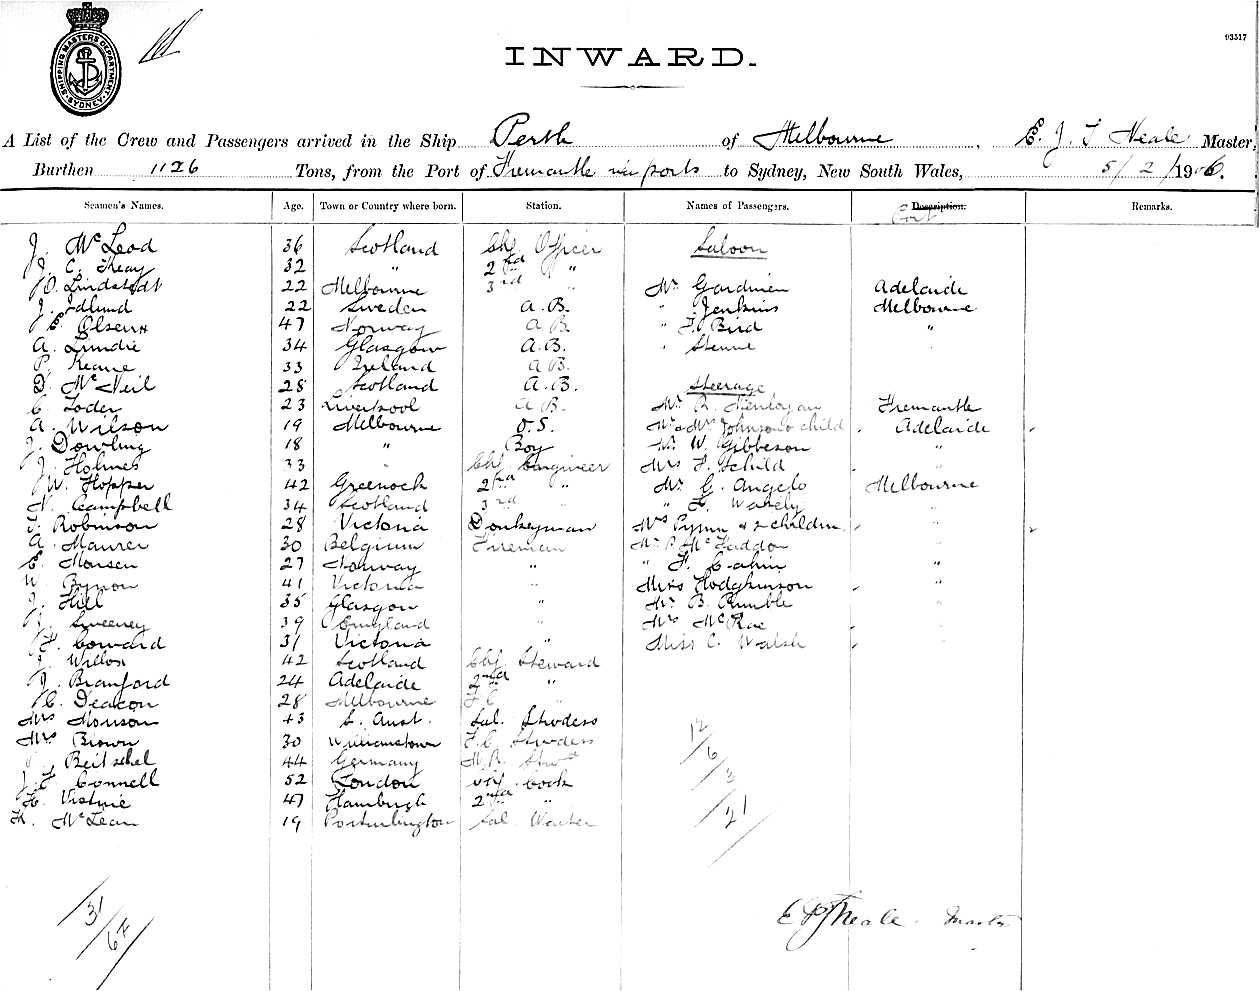 SHIPPING MASTERS DEPARTMENT SYDNEY
93517
INWARD.
A List of the Crew and Passengers arrived in the Ship Perth of Melbourne, J. T. Neale Master,
Burthen 1126 Tons, from the Port of Fremantle via ports to Sydney, New South Wales, 5/2/1906.
Seamen's Names. Age. Town or Country where born. Station. Names of Passengers. Description. Remarks.
J. McLeod 36 Scotland Chf Officer Saloon
J. C. Keay 32 " 2nd "
O. Lindstedt 22 Melbourne 3rd Mr Gardiner Adelaide
J. Idlund 22 Sweden A.B. " Jenkins Melbourne
E Olsen 47 Norway A B. " Bird "
A. Lundie 34 Glasgow A.B.
P. Keane 33 Ireland A B.
D. McNeil 28 Scotland A.B. Steerage
C Loder 23 Liverpool A B. Mr R. Fremantle
A. Wilson 19 Melbourne O.S. Mr & Mrs Johnson & child Adelaide
J. Dowling 18 " Boy Mr W. Gibbeson "
J. Holmes 33 " Chf Engineer Mrs & child "
W. Hopper 42 Greenock 2nd " Mr G. Angelo Melbourne
Campbell 34 Scotland 3rd "
Robinson 28 Victoria Donkeyman Mrs & 2 children "
A. Maurer 30 Belgium Fireman Mr P McFaddon "
E. Monsen 27 Norway " " "
W. Bymon 41 Victoria " Miss Hodgkinson "
J. Hill 35 Glasgow " Mr B. Rumble "
Sweeney 39 England " Mrs McRae "
Coward 31 Victoria " Miss C. Walsh
42 Scotland Chf. Steward
J. Branford 24 Adelaide 2nd "
C. Deacon 28 Melbourne F.C "
Mrs Monson 43 S. Aust. Sal. Stwdess
Mrs Brown 30 Williamstown F.C Stwdess
Beitschel 44 Germany
Connell 52 London cook
47 Hamburgh 2nd "
McLean 19 Portarlington Sal. Waiter
12/6/3/21
31/
Neale. Master